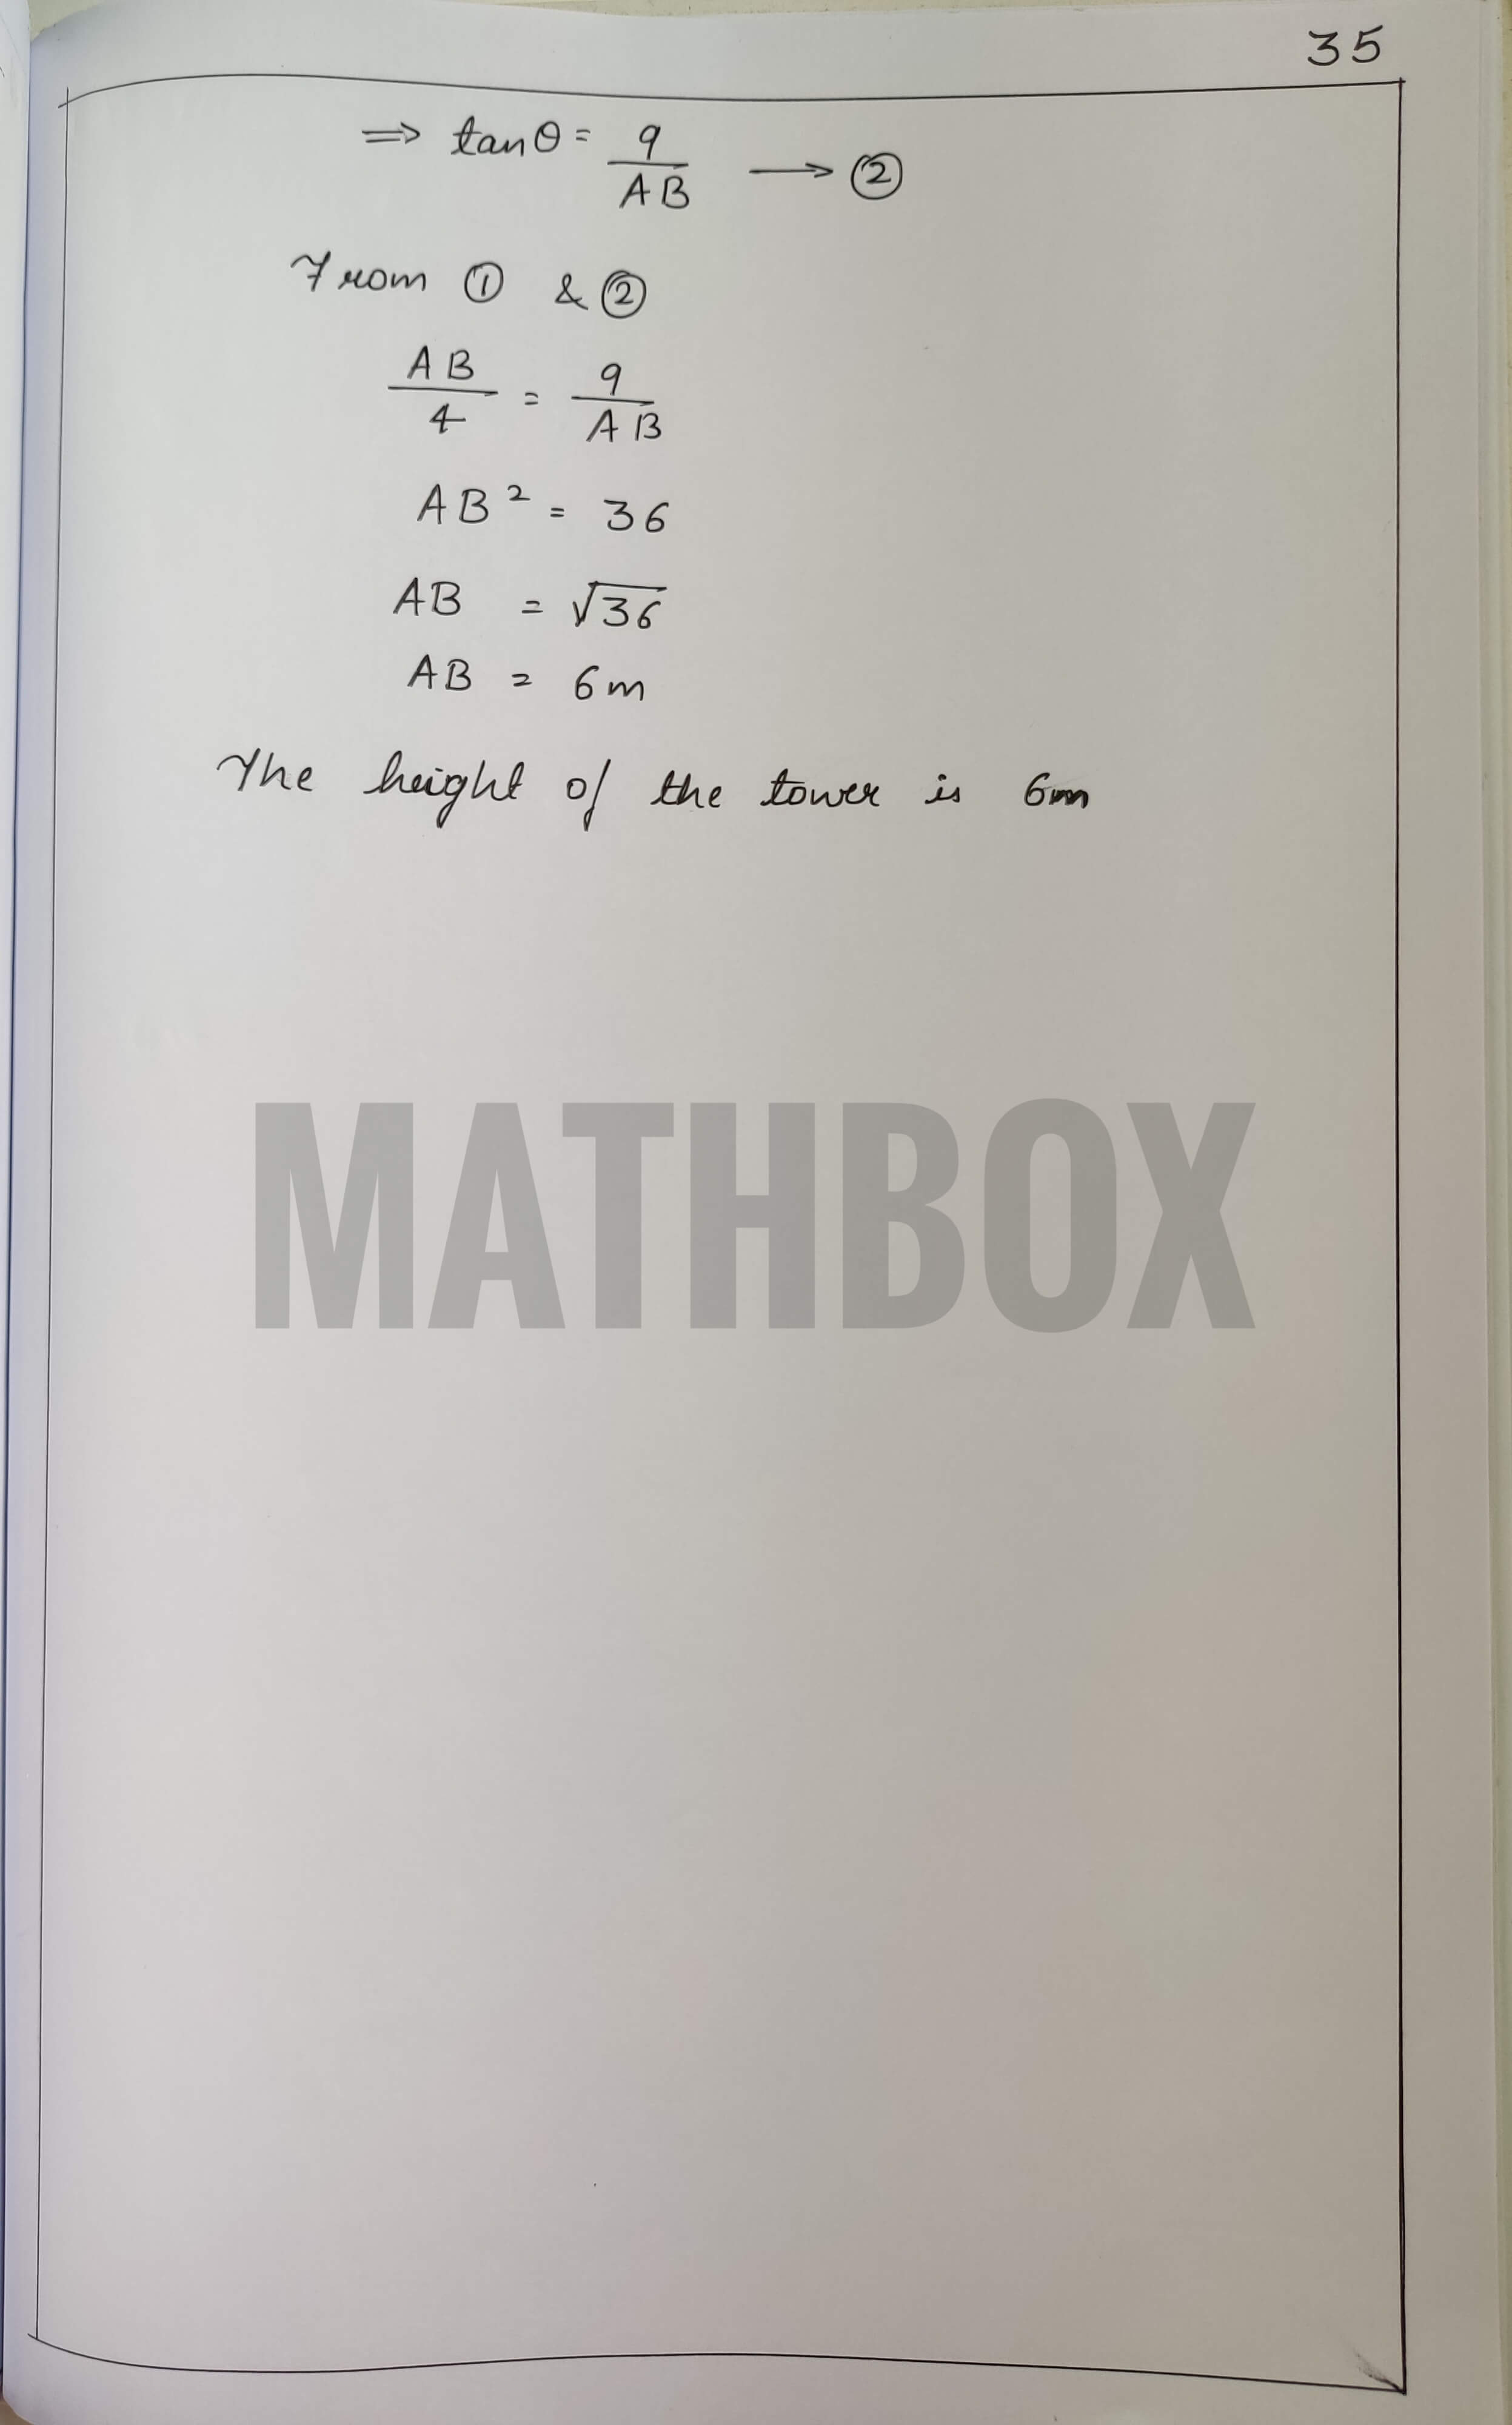 35
⇒ tanθ = 9/AB → ②
From ① & ②
AB/4 = 9/AB
AB² = 36
AB = √36
AB = 6m
The height of the tower is 6m
MATHBOX